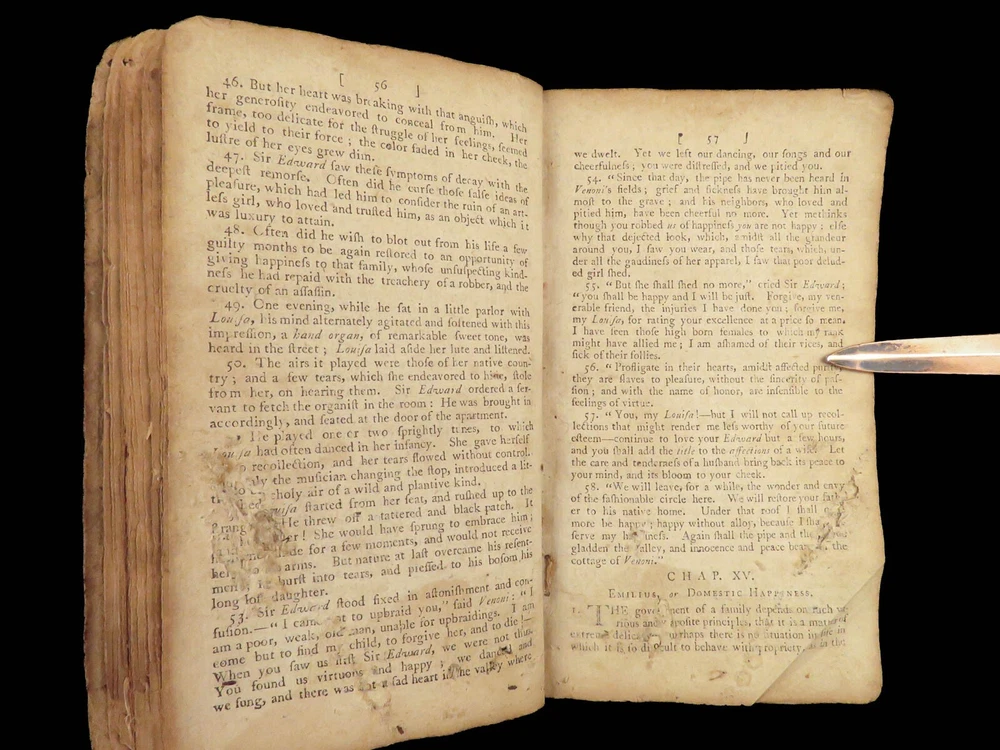 [ 56 ]
46. But her heart was breaking with that anguiſh, which
her generoſity endeavored to conceal from him. Her
frame, too delicate for the ſtruggle of her feelings, ſeemed
to yield to their force; the color faded in her cheek, the
luſtre of her eyes grew dim.
47. Sir Edward ſaw theſe ſymptoms of decay with the
deepeſt remorſe. Often did he curſe thoſe falſe ideas of
pleaſure, which had led him to conſider the ruin of an art-
leſs girl, who loved and truſted him, as an object which it
was luxury to attain.
48. Often did he wiſh to blot out from his life a few
guilty months to be again reſtored to an opportunity of
giving happineſs to that family, whoſe unſuſpecting kind-
neſs he had repaid with the treachery of a robber, and the
cruelty of an aſſaſſin.
49. One evening, while he ſat in a little parlor with
Louiſa, his mind alternately agitated and ſoftened with this
impreſſion, a hand organ, of remarkable ſweet tone, was
heard in the ſtreet; Louiſa laid aſide her lute and liſtened.
50. The airs it played were thoſe of her native coun-
try; and a few tears, which ſhe endeavored to hide, ſtole
from her, on hearing them. Sir Edward ordered a ſer-
vant to fetch the organiſt in the room: He was brought in
accordingly, and ſeated at the door of the apartment.
He played one or two ſprightly tunes, to which
Louiſa had often danced in her infancy. She gave herſelf
recollection, and her tears flowed without control.
the muſician changing the ſtop, introduced a lit-
choly air of a wild and plantive kind.
ſtarted from her ſeat, and ruſhed up to the
He threw off a tattered and black patch. It
er! She would have ſprung to embrace him;
for a few moments, and would not receive
her arms. But nature at laſt overcame his reſent-
ment, burſt into tears, and preſſed to his boſom his
long loſt daughter.
53. Sir Edward ſtood fixed in aſtoniſhment and con-
fuſion.—"I came not to upbraid you," ſaid Venoni: "I
am a poor, weak, old man, unable for upbraidings. I am
come but to find my child, to forgive her, and to die!—
When you ſaw us firſt Sir Edward, we were not thus.
You found us virtuous and happy; we danced and
we ſung, and there was not a ſad heart in the valley where
[ 57 ]
we dwelt. Yet we left our dancing, our ſongs and our
cheerfulneſs; you were diſtreſſed, and we pitied you.
54. "Since that day, the pipe has never been heard in
Venoni's fields; grief and ſickneſs have brought him al-
moſt to the grave; and his neighbors, who loved and
pitied him, have been cheerful no more. Yet methinks
though you robbed us of happineſs you are not happy; elſe
why that dejected look, which, amidſt all the grandeur
around you, I ſaw you wear, and thoſe tears, which, un-
der all the gaudineſs of her apparel, I ſaw that poor delud-
ed girl ſhed.
55. "But ſhe ſhall ſhed no more," cried Sir Edward;
"you ſhall be happy and I will be juſt. Forgive, my ven-
erable friend, the injuries I have done you; forgive me,
my Louiſa, for rating your excellence at a price ſo mean.
I have ſeen thoſe high born females to which my rank
might have allied me; I am aſhamed of their vices, and
ſick of their follies.
56. "Profligate in their hearts, amidſt affected purity,
they are ſlaves to pleaſure, without the ſincerity of paſ-
ſion; and with the name of honor, are inſenſible to the
feelings of virtue.
57. "You, my Louiſa!—but I will not call up recol-
lections that might render me leſs worthy of your future
eſteem—continue to love your Edward but a few hours,
and you ſhall add the title to the affections of a wife. Let
the care and tenderneſs of a huſband bring back its peace to
your mind, and its bloom to your cheek.
58. "We will leave, for a while, the wonder and envy
of the faſhionable circle here. We will reſtore your fath-
er to his native home. Under that roof I ſhall
more be happy; happy without alloy, becauſe I
ſerve my happineſs. Again ſhall the pipe and the
gladden the valley, and innocence and peace beam on the
cottage of Venoni."
CHAP. XV.
Emilius, or Domestic Happiness.
1. THE government of a family depends on ſuch va-
rious and oppoſite principles, that it is a matter of
extreme delicacy perhaps there is no ſituation in life in
which it is ſo difficult to behave with propriety, as in the